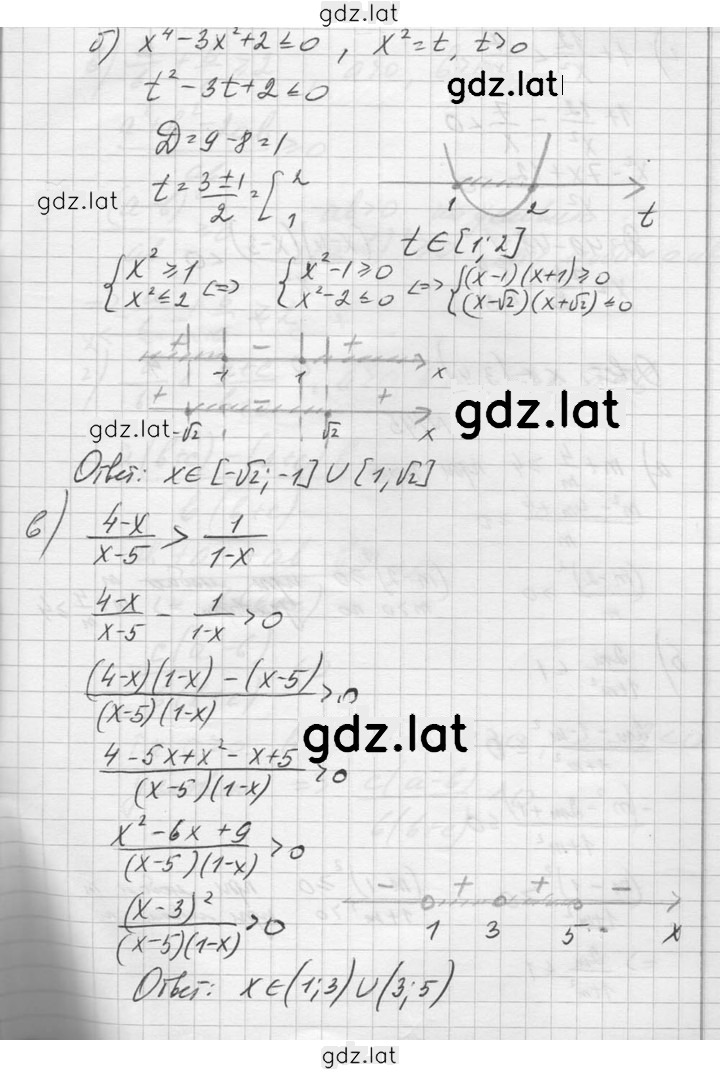 gdz.lat
б) x⁴-3x²+2≤0, x²=t, t>0
gdz.lat
t²-3t+2≤0
D=9-8=1
gdz.lat
t = (3±1)/2 = [2; 1
1 2 t
t∈[1;2]
{x²≥1; x²≤2 <=> {x²-1≥0; x²-2≤0 <=> {(x-1)(x+1)≥0; (x-√2)(x+√2)≤0
+ -1 - 1 + x
gdz.lat
+ -√2 - √2 + x
gdz.lat
Ответ: x∈[-√2;-1]∪[1,√2]
в) (4-x)/(x-5) > 1/(1-x)
(4-x)/(x-5) - 1/(1-x) >0
((4-x)(1-x)-(x-5))/((x-5)(1-x)) >0
gdz.lat
(4-5x+x²-x+5)/((x-5)(1-x)) >0
(x²-6x+9)/((x-5)(1-x)) >0
(x-3)²/((x-5)(1-x)) >0
- + + -
1 3 5 x
Ответ: x∈(1;3)∪(3;5)
gdz.lat